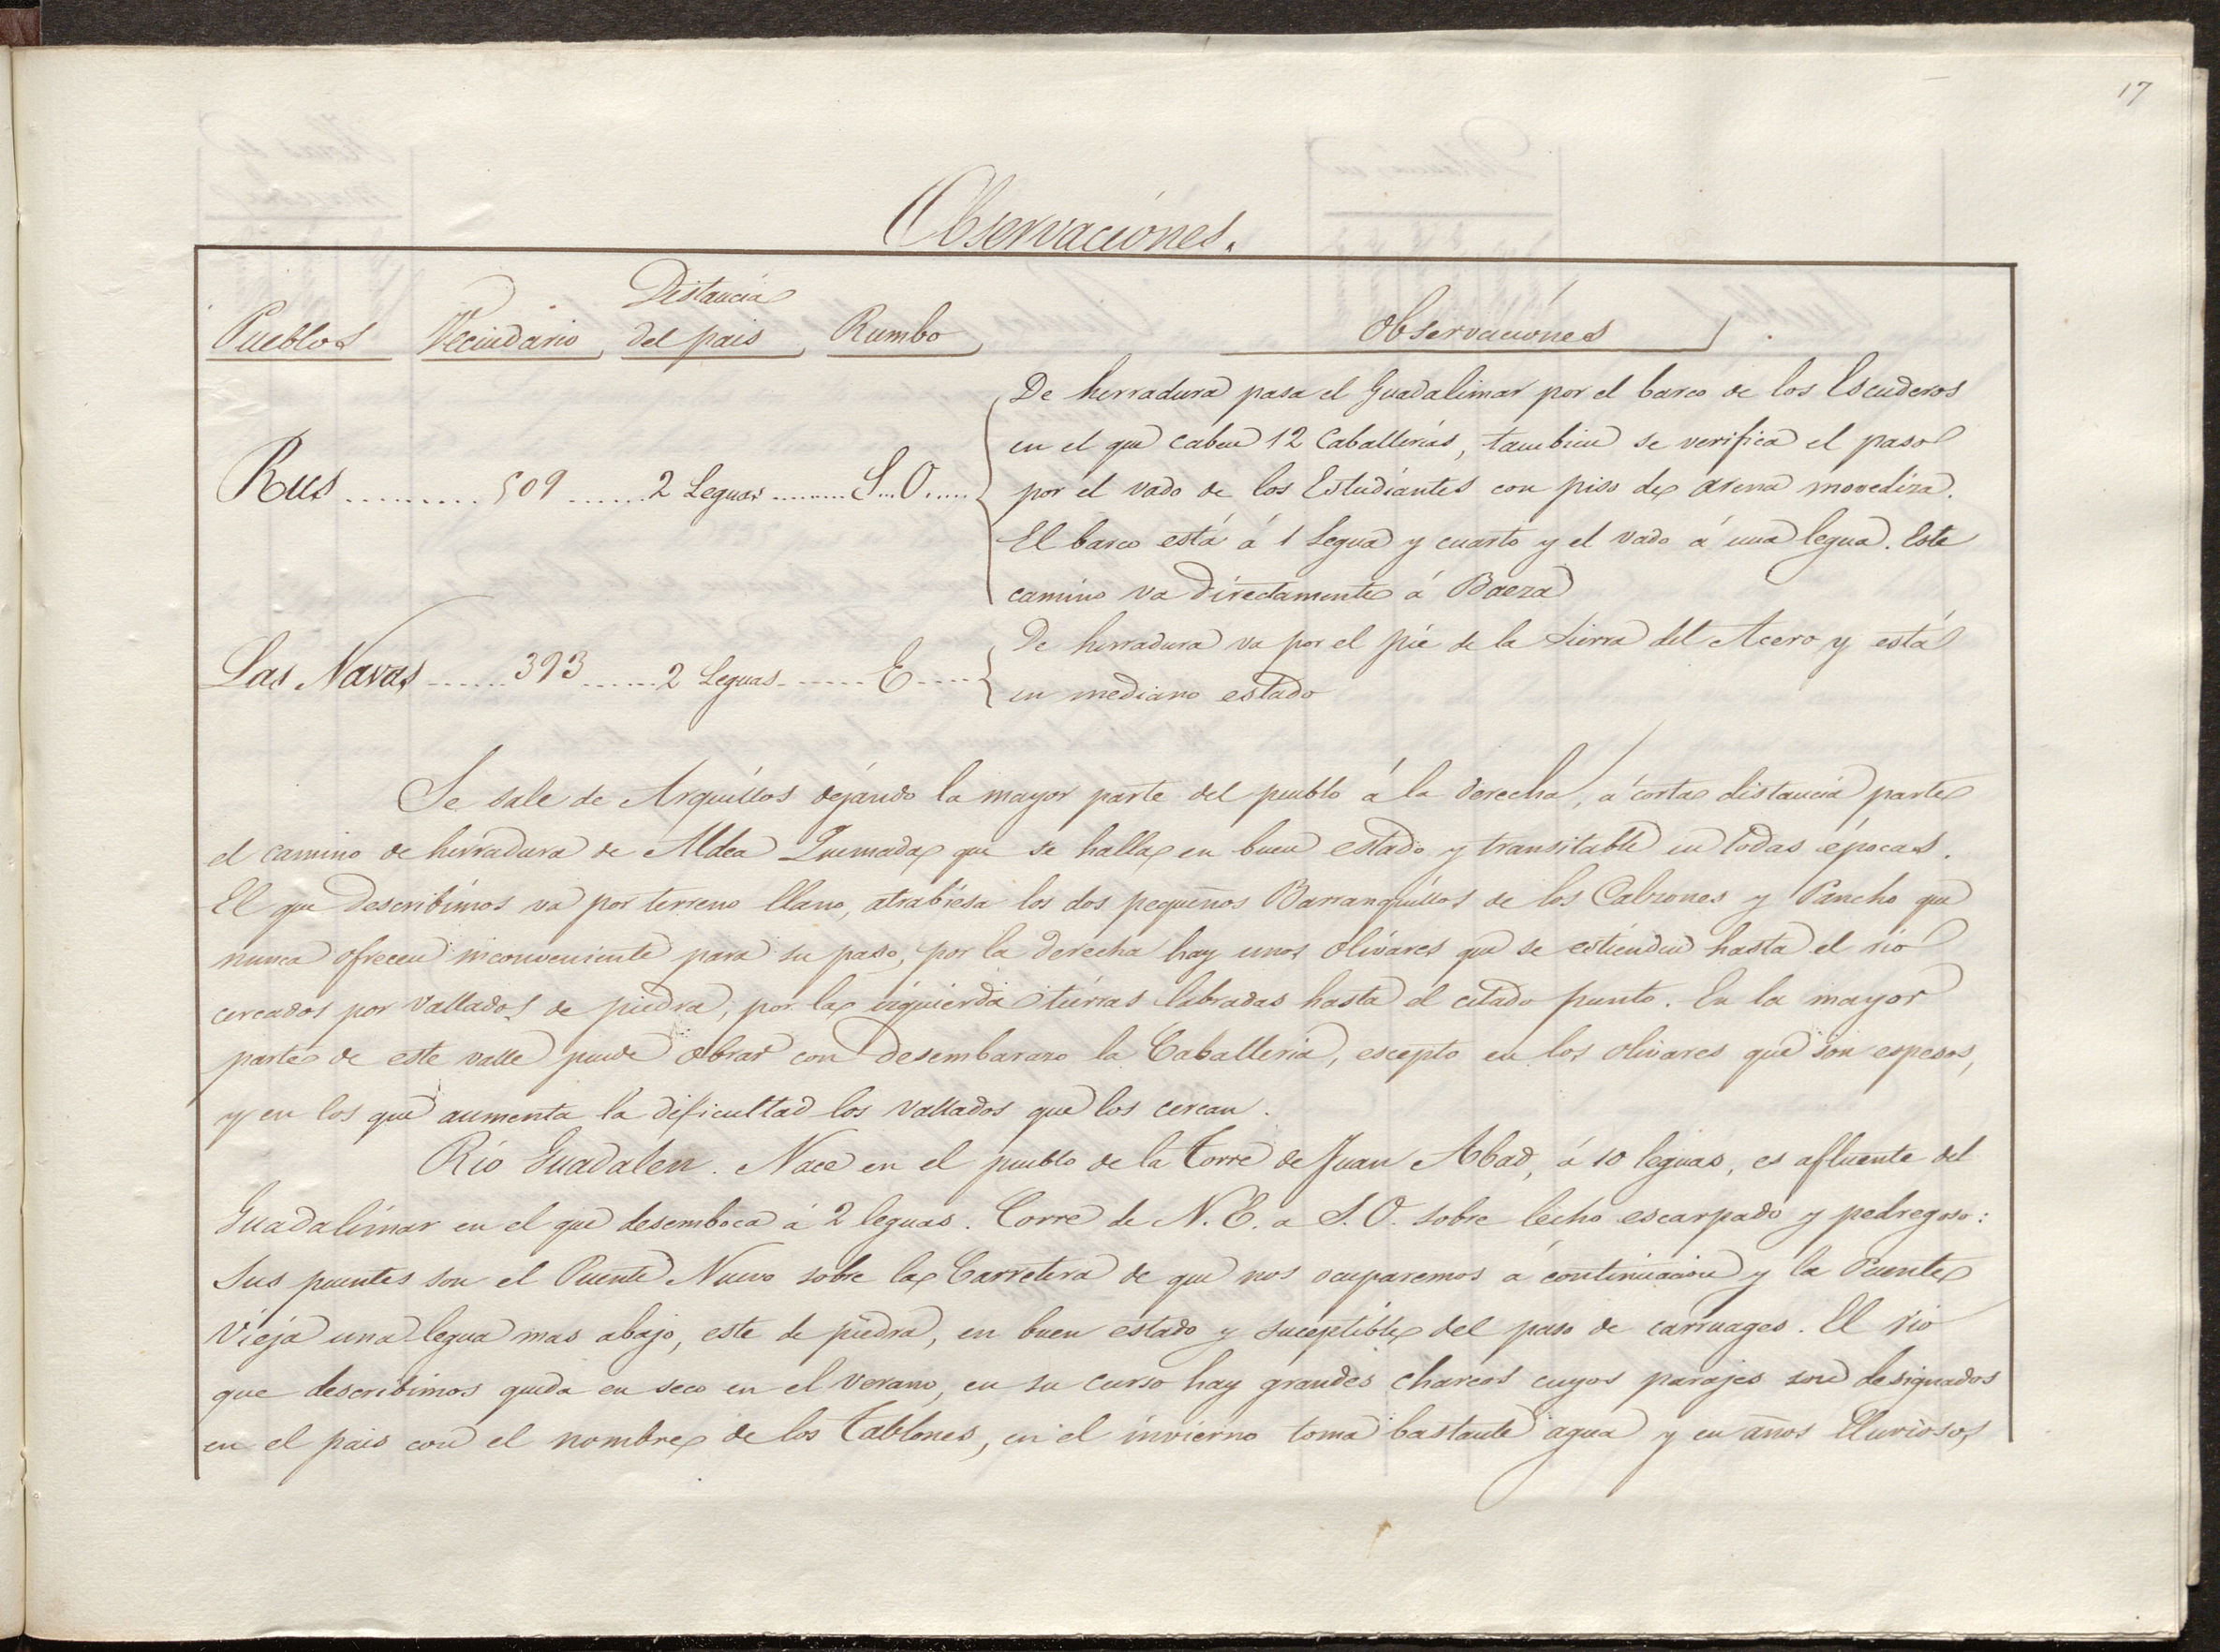 17
Observaciones.
Pueblos Vecindario Distancia del pais Rumbo Observaciones
De herradura pasa el Guadalimar por el barco de los Escuderos
en el que caben 12 Caballerias, tambien se verifica el paso
Rus 509 2 Leguas S.O. por el vado de los Estudiantes con piso de arena movediza.
El barco está á 1 Legua y cuarto y el vado á una legua. Este
camino va directamente á Baeza
De herradura va por el pie de la Sierra del Acero y está
Las Navas 393 2 Leguas E
en mediano estado
Se sale de Arquillos dejando la mayor parte del pueblo á la derecha, á corta distancia parte
el camino de herradura de Aldea Quemada que se halla en buen estado y transitable en todas épocas.
El que describimos va por terreno llano, atrabiesa los dos pequeños Barranquillos de los Calzones y Pancho que
nunca ofrecen inconveniente para su paso, por la derecha hay unos olivares que se estienden hasta el rio
cercados por vallados de piedra, por la izquierda tierras labradas hasta el citado punto. En la mayor
parte de este valle puede obrar con desembarazo la Caballeria, escepto en los olivares que son espesos,
y en los que aumenta la dificultad los vallados que los cercan.
Rio Guadalen. Nace en el pueblo de la Torre de Juan Abad, á 10 leguas, es afluente del
Guadalimar en el que desemboca á 2 leguas. Corre de N.E. a S.O. sobre lecho escarpado y pedregoso:
Sus puentes son el Puente Nuevo sobre la Carretera de que nos ocuparemos á continuacion y la Puente
Vieja una legua mas abajo, este de piedra, en buen estado y suceptible del paso de carruages. El rio
que describimos queda en seco en el verano, en su curso hay grandes charcos cuyos parajes son designados
en el pais con el nombre de los Tablones, en el invierno toma bastante agua y en años lluviosos